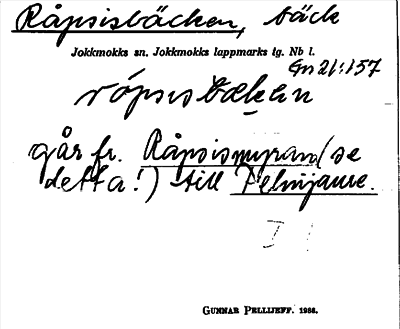 Råpsisbäcken, bäck
Jokkmokks sn. Jokkmokks lappmarks tg. Nb l.
Gn 21:157
rópsisbæḱen
går fr. Råpsismyran (se
detta!) till Pelnijaure.
GUNNAR PELLIJEFF. 1966.